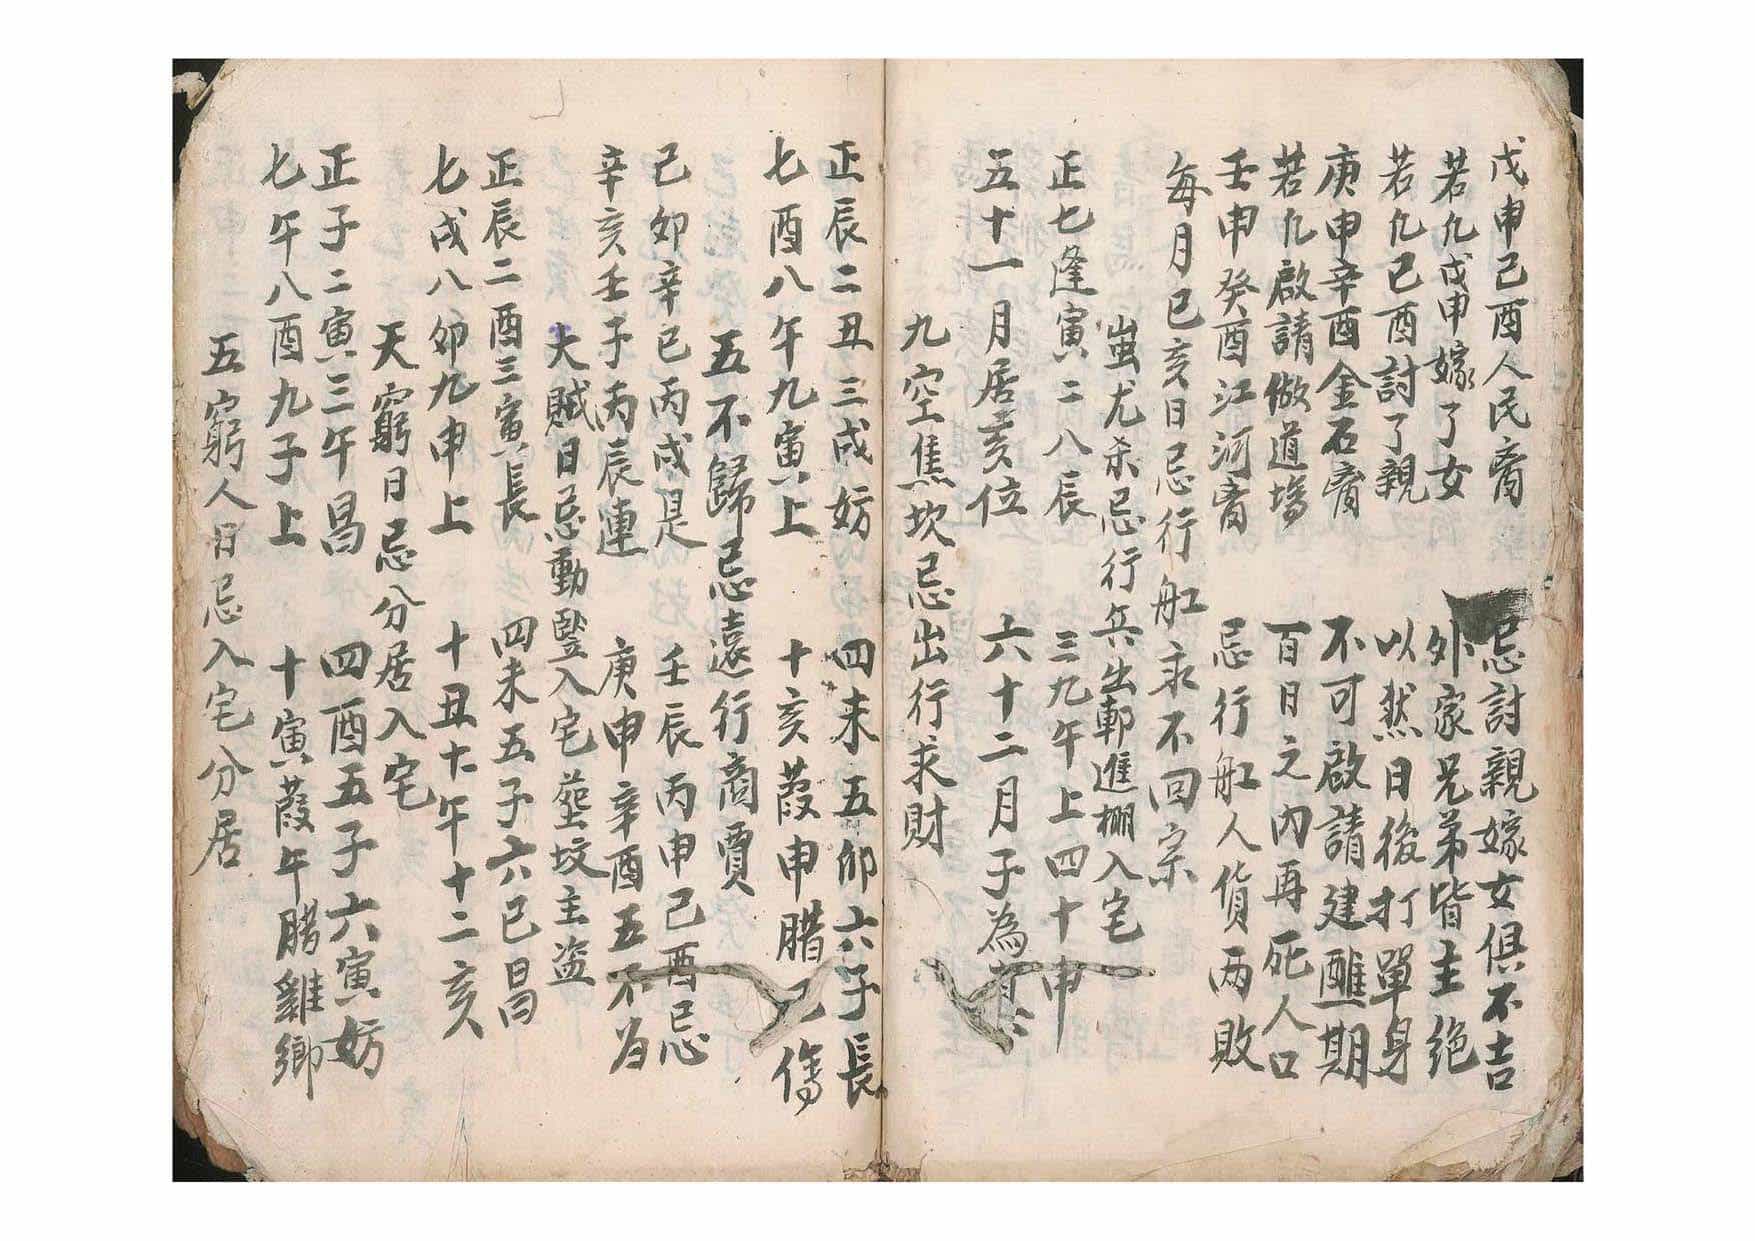 戊申己酉人民 忌討親嫁女俱不吉
若凢戊申嫁了女 外家兄弟皆主绝
若凢己酉討了親 以然日後打單身
庚申辛酉金石 不可啟請建醮一期
若凢啟請做道塲 百日之内再死人口
壬申癸酉江河 忌行舡人貨两敗
每月巳亥日忌行舡求不回宗
蚩尤杀忌行兵出郭進棚入宅
正七逢寅二八辰 三九午上四十申
五十一月居亥位 六十二月子為
九空焦坎忌出行求財
正辰二丑三戌妨 四未五卯六子長
七酉八午九寅上 十亥葭申腊巳傷
五不歸忌遠行商賈
己卯辛巳丙戌是 壬辰丙申己酉忌
辛亥壬子丙辰連 庚申辛酉五不为
大賊日忌動竪入宅塟坟主盗
正辰二酉三寅長 四未五子六巳昌
七戌八卯九申上 十丑十午十二亥
天窮日忌分居入宅
正子二寅三午昌 四酉五子六寅妨
七午八酉九子上 十寅葭午腊雞鄉
五窮人日忌入宅分居